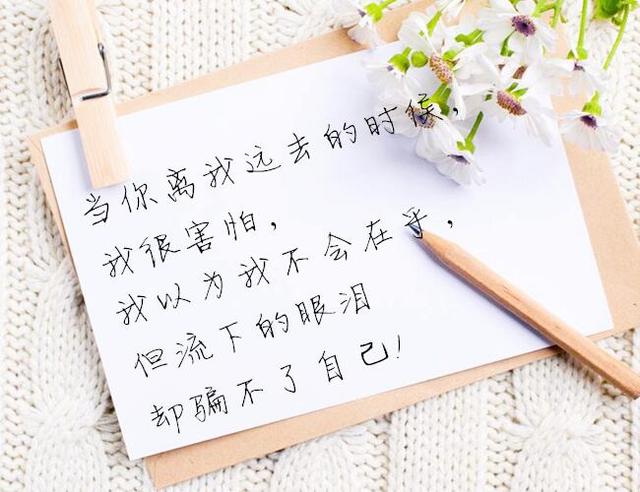 当你离我远去的时候，
我很害怕，
我以为我不会在乎，
但流下的眼泪
却骗不了自己！